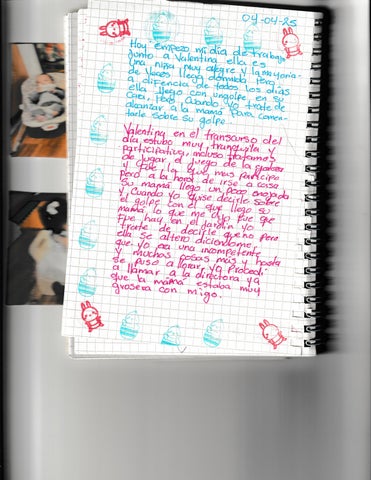 04-04-25
Hoy empezo mi día de trabajo
junto a Valentina ella es
una niña muy alegre y la mayoría
de veces llega dormida pero
a diferencia de todos los dias
ella llego con un golpe en su
cara, pero cuando yo trate de
llamar a la mama para comen-
tarle sobre su golpe
Valentina en el transcurso del
día estubo muy tranquila y
participativa, incluso tratamos
de jugar el juego de la
y fue la que mas participo
pero a la hora de irse a casa
su mamá llego un poco enojada
y cuando yo quise decirle sobre
el golpe con el que llego su
mamá, lo que me dijo fue que
fue hay en el jardin yo
trate de decirle que no pero
ella se altero diciendome
que yo era una incompetente
y muchas cosas mas y hasta
se puso a llorar, ya procedi
a llamar a la directora ya
que la mamá estaba muy
grosera con migo.